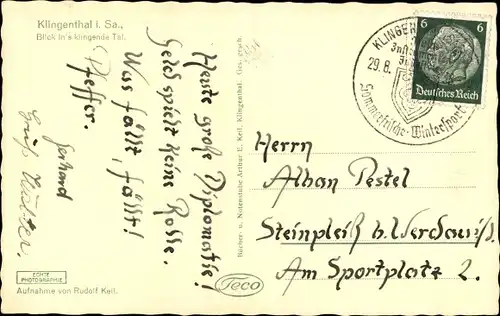 Klingenthal i. Sa.,
Blick in's klingende Tal.
Heute große Diplomatie!
Geld spielt keine Rolle.
Was fällt, fällt!
Pfeffer.
Gerhard
Gruß
Bücher- u. Notenstube Arthur E. Keil, Klingenthal. Ges. gesch.
ECHTE
PHOTOGRAPHIE
Aufnahme von Rudolf Keil.
Teco
KLINGEN
29.8.
Sommerfrische-Wintersport
6 6
Deutsches Reich
Herrn
Alban Pestel
Steinpleiß b. Werdau i/S.
Am Sportplatz 2.